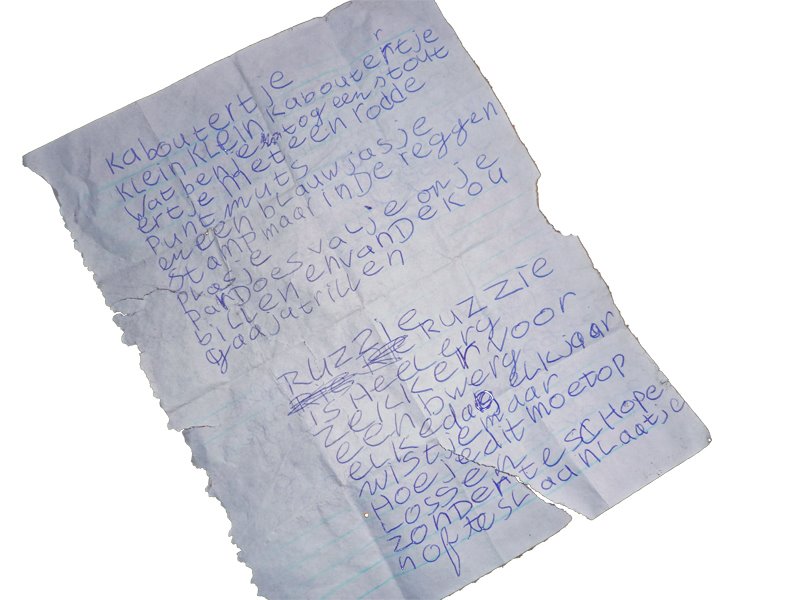 Kaboutertje
Klein Klein Kaboutertje
wat ben je tog een stout
ertje Met een rodde
Punt muts
en een blauw jasje
stamp maar in De reggen
plasje
parDoes val je on je
billen en van De kou
gaa ja trillen
Ruzzie
Ruzzie
is Heel erg
zekker voor
een Dwerg
elke dag elk jaar
wist je maar
Hoe je dit moet op
Lossen
zonDer te schope
n of te slaan Laatje